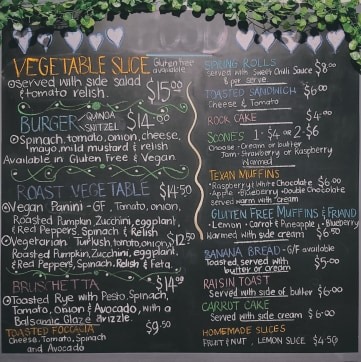 VEGETABLE SLICE Gluten free available
Served with side salad
& tomato relish. $15.00
BURGER QUINOA SNITZEL $14.00
Spinach, tomato, onion, cheese,
mayo, mild mustard & relish
Available in Gluten Free & Vegan
ROAST VEGETABLE $14.50
Vegan Panini - GF, Tomato, onion,
Roasted Pumpkin, Zucchini, eggplant,
& Red Peppers, Spinach & Relish
Vegetarian Turkish tomato, onion, $12.50
Roasted Pumpkin, Zucchini, eggplant,
& Red Peppers, Spinach, Relish & Feta
BRUSCHETTA $14.00
Toasted Rye with Pesto, Spinach,
Tomato, Onion & Avocado, with a
Balsamic Glaze drizzle.
TOASTED FOCCACIA $9.50
Cheese, Tomato, Spinach
and Avocado
SPRING ROLLS $8.00
Served with Sweet Chilli Sauce
4 per serve
TOASTED SANDWICH $6.00
Cheese & Tomato
ROCK CAKE $4.00
SCONES 1 - $4 or 2 - $6
Choose - Cream or butter
Jam - Strawberry or Raspberry
Warmed
TEXAN MUFFINS
Raspberry White Chocolate $6.00
Apple Blueberry Double Chocolate
Served warm with cream
GLUTEN FREE MUFFINS & FRIAND
Lemon Carrot & Pineapple Blueberry
Warmed with side cream $6.50
BANANA BREAD - G/F available
Toasted, served with $5.00
butter or cream
RAISIN TOAST
Served with side of butter $6.00
CARROT CAKE
Served with side cream $6.00
HOMEMADE SLICES
FRUIT & NUT, LEMON SLICE $4.50